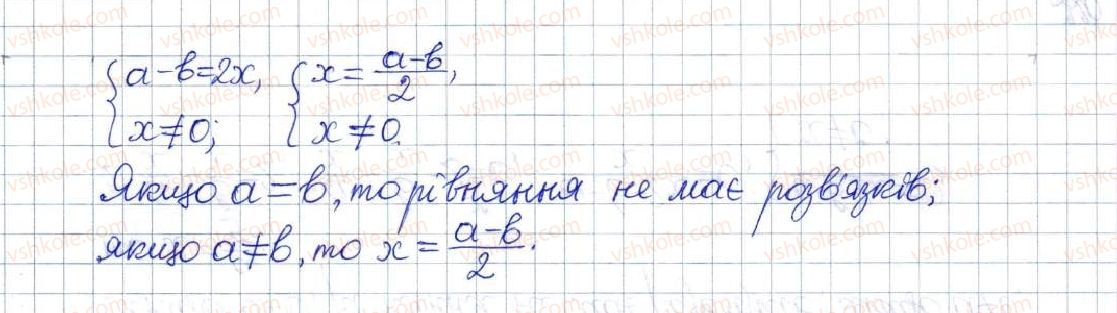 {a-b=2x, {x=\frac{a-b}{2},
{x≠0; {x≠0.
Якщо a=b, то рівняння не має розв'язків;
якщо a≠b, то x=\frac{a-b}{2}.